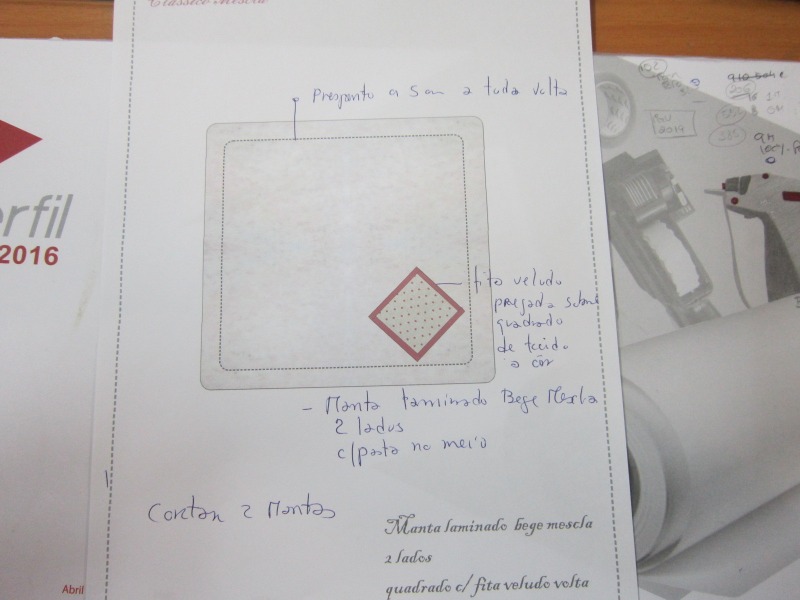 Clássico Mescla
Prespento a 5 cm a toda volta
fita veludo
pregada sobre
quadrado
de tecido
a côr
- Manta laminado Bege Mescla
2 lados
c/pasta no meio
Contan 2 Mantas
Manta laminado bege mescla
2 lados
quadrado c/ fita veludo volta
erfil
2016
Abril
SU
2019